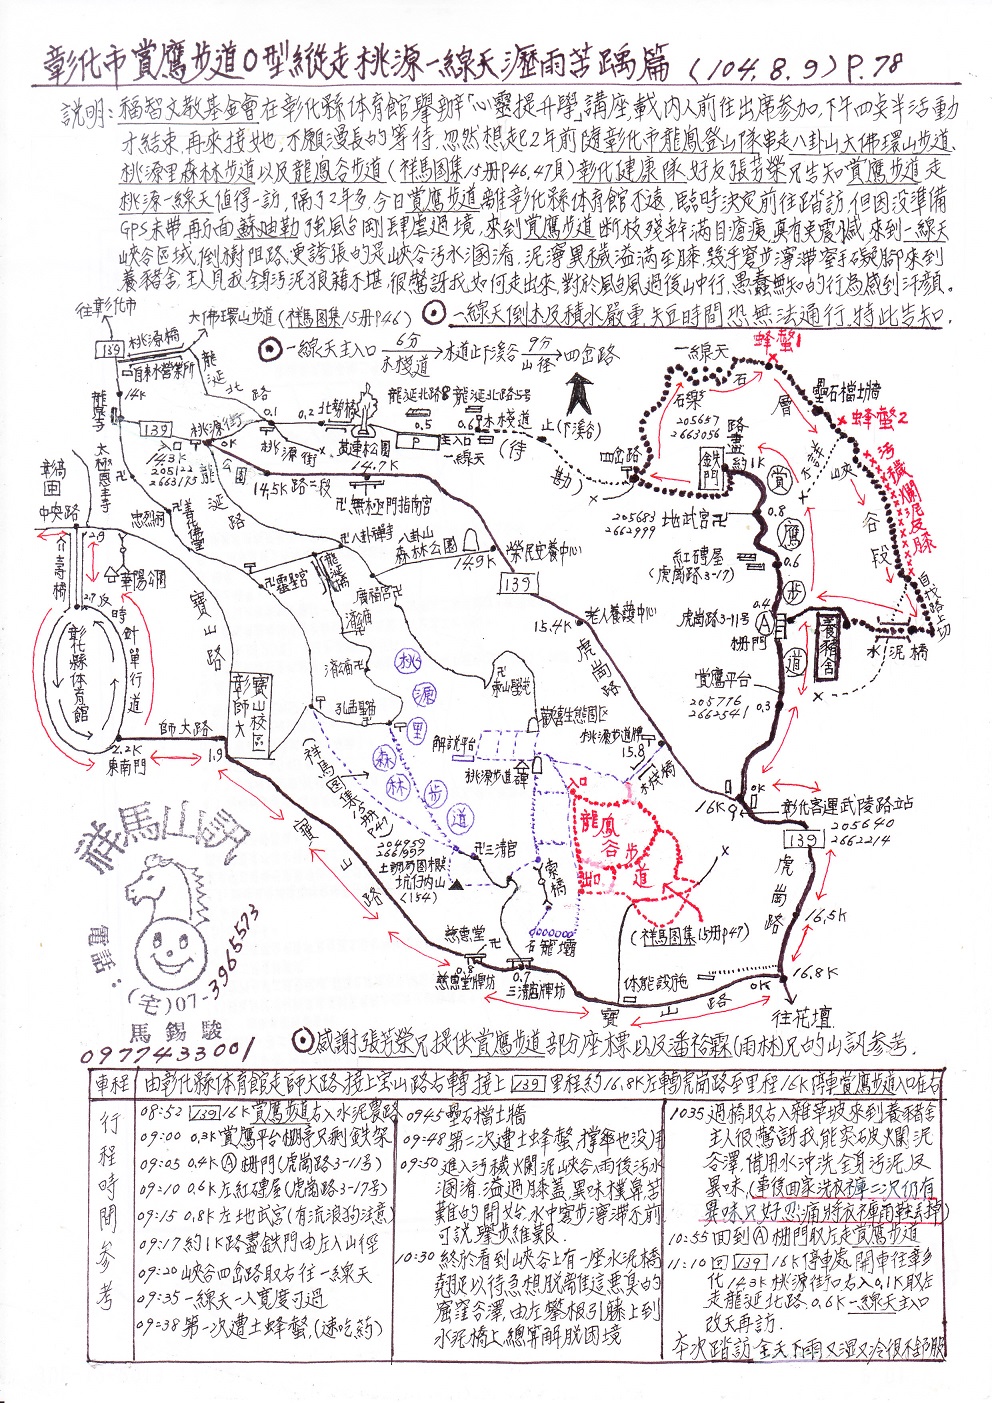 彰化市賞鷹步道O型縱走桃源一線天瀝雨苦踽篇(104.8.9)P.78
說明:福智文教基金會在彰化縣体育館舉辦「心靈提升學」講座載內人前往出席參加,下午四点半活動
才結束,再來接她,不願漫長的等待,忽然想起2年前隨彰化市龍鳳登山隊串走八卦山大佛環山步道、
桃源里森林步道以及龍鳳谷步道(祥馬图集15册P46,47頁)彰化健康隊好友張芳榮兄告知賞鷹步道走
桃源一線天值得一訪,隔了2年多,今日賞鷹步道離彰化縣体育館不遠,臨時決定前往踏訪,但因没準備
GPS未帶,再方面蘇迪勒強風台剛肆虐過境,來到賞鷹步道断枝殘幹滿目瘡痍,真有夠震憾,來到一線天
峽谷區域,倒樹阻路,更誇張的是峽谷污水溷淆,泥濘異穢溢滿至膝,幾乎寸步濘滯
養豬舍,主人見我全身污泥狼藉不堪,很驚訝我如何走出來,對於風台風過後山中行,愚蠢無知的行為感到汗顏。
⊙一線天倒木及積水嚴重,短時間恐無法通行,特此告知.
往彰化市
大佛環山步道(祥馬图集15册P46)
⊙一線天主入口 6分 木棧道 水道止下溪谷 9分 山徑 四岔路
139
桃源橋
自來水營業所
14K
龍泉寺
龍涎北路
0.1
0.2
北勢橋
黃連松園
龍涎北路8
0.5
龍涎北路5号
0.6
P
主入口
一線天
木棧道
(待勘)
止(下溪谷)
一線天
石梁
205657
2663056
石層
蜂螫1
壘石檔土牆
蜂螫2
污穢爛泥及膝
峽谷段
自找路上切
水泥橋
四岔路
鉄門
路盡約1K
賞鷹步道
205683
2662999
地武宮
0.8
紅磚屋
(虎崗路3-17)
0.6
0.4
虎崗路3-11号
柵門
A
養豬舍
賞鷹平台
205776
2662541
0.3
0K
139
14.3K
205122
2663175
桃源街
0K
桃源街
公園
14.5K
路二段
14.7K
無極門指南宮
太極恩主寺
忠烈祠
善德佛堂
龍涎路
八卦禪寺
八卦山
森林公園
14.9K
榮民安養中心
139
彰高
中央路
2.9
壽橋
華陽公園
2.7
反時針單行道
彰化縣体育館
2.2K
東南門
師大路
1.9
寶山路
彰師大
寶山校區
靈聖宮
龍涎橋
廣福宮
清南
東山學苑
孔西聖廟
桃源里森林步道
歡喜生態園區
解說平台
桃源步道碑
桃源步道牌
15.8
木棧橋
15.4K
老人養護中心
虎崗路
16K
彰化客運武陵路站
205640
2662214
139
虎崗路
16.5K
16.8K
0K
往花壇
入口
龍鳳谷步道
出口
(祥馬图集15册P47)
三清宮
204959
2661997
坑仔內山
(154)
索橋
石籠壩
慈惠堂
0.8
慈惠堂牌坊
0.7
三清宮牌坊
体能設施
寶山路
寶山路
祥馬山訊
電話:
(宅)07-3965573
馬錫駿
0977433001
⊙感謝張芳榮兄提供賞鷹步道部分座標以及潘裕霖(雨林)兄的山訊參考.
車程 由彰化縣体育館走師大路,接上宝山路右轉,接上139里程約16.8K左轉虎崗路至里程16K停車賞鷹步道入口在右
行程時間參考
08:52 139 16K賞鷹步道右入水泥農路
09:00 0.3K賞鷹平台棚亭只剩鉄架
09:05 0.4K A柵門(虎崗路3-11号)
09:10 0.6K左紅磚屋(虎崗路3-17号)
09:15 0.8K左地武宮(有流浪狗注意)
09:17約1K路盡鉄門由左入山徑
09:20峽谷四岔路取右往一線天
09:35一線天一人寬度可過
09:38第一次遭土蜂螫(速吃葯)
0945壘石檔土牆
09:48第二次遭土蜂螫,撐傘也没用
09:50進入污穢爛泥峽谷,雨後污水
溷淆,溢過膝蓋,異味樸鼻,苦
難的開始,水中寸步濘滯不前
可說舉步維艱.
10:30終於看到峽谷上有一座水泥橋
翹足以待急想脱離這悪臭的
窟窪谷澤,由左攀根引膝上到
水泥橋上總算解脫困境
1035過橋取右入雜草坡來到養豬舍
主人很驚訝我能突破爛泥
谷澤,借用水沖洗全身污泥及
異味,(事後回家洗衣褲二次仍有
異味只好忍痛將衣褲雨鞋丟掉)
10:55回到A柵門取左走賞鷹步道
11:10回139 16K停車處,開車往彰
化14.3K桃源街和右入0.1K取左
走龍涎北路0.6K一線天主入口
改天再訪.
本次踏訪全天下雨又濕又冷很不舒服